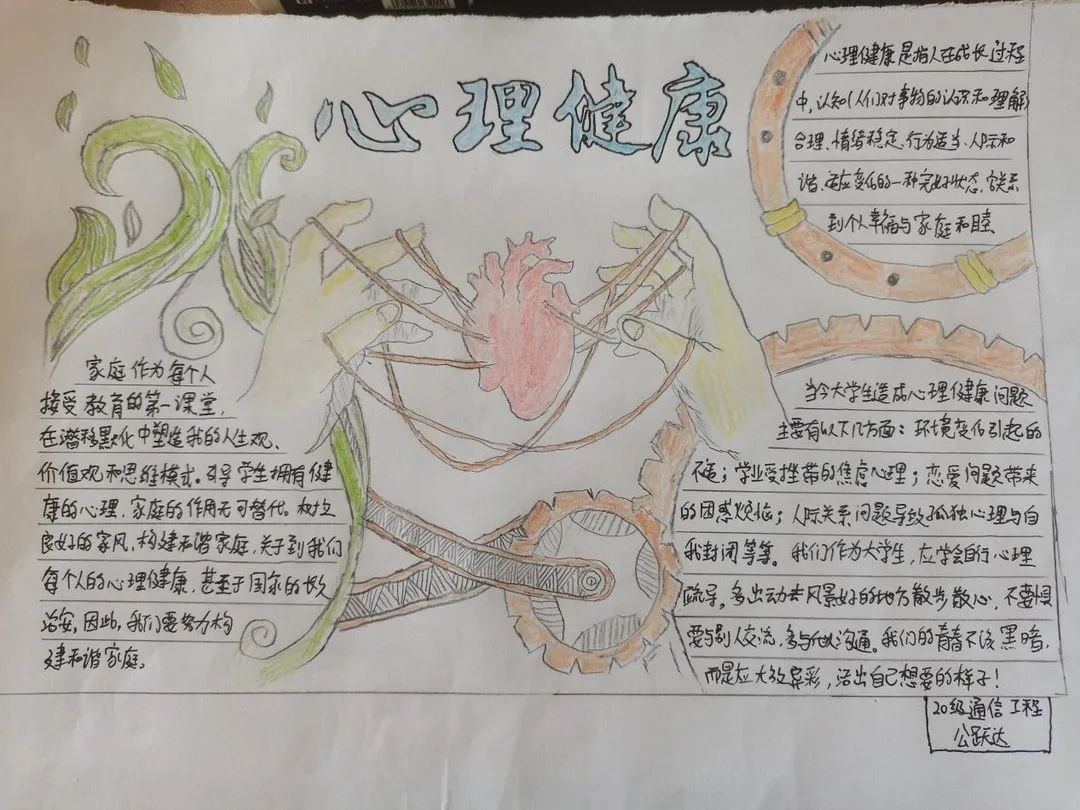 心理健康
心理健康是指人在成长过程
中,认知(人们对事物的认识和理解)
合理、情绪稳定、行为适当、人际和
谐、适应变化的一种完好状态,它关系
到个人幸福与家庭和睦、
家庭作为每个人
接受教育的第一课堂,
在潜移默化中塑造我的人生观、
价值观和思维模式。引导学生拥有健
康的心理,家庭的作用无可替代。树立
良好的家风,构建和谐家庭,关于到我们
每个人的心理健康,甚至于国家的长久
治安,因此,我们要努力构
建和谐家庭。
当今大学生造成心理健康问题
主要有以下几方面:环境变化引起的
不适;学业受挫带的焦虑心理;恋爱问题带来
的困惑烦恼;人际关系问题导致孤独心理与自
我封闭等等。我们作为大学生,应学会自行心理
疏导,多出动去风景好的地方散步散心,不要惧
要与别人交流,多与他人沟通。我们的青春不该黑暗,
而是应大放异彩,活出自己想要的样子!
20级通信工程
公跃达